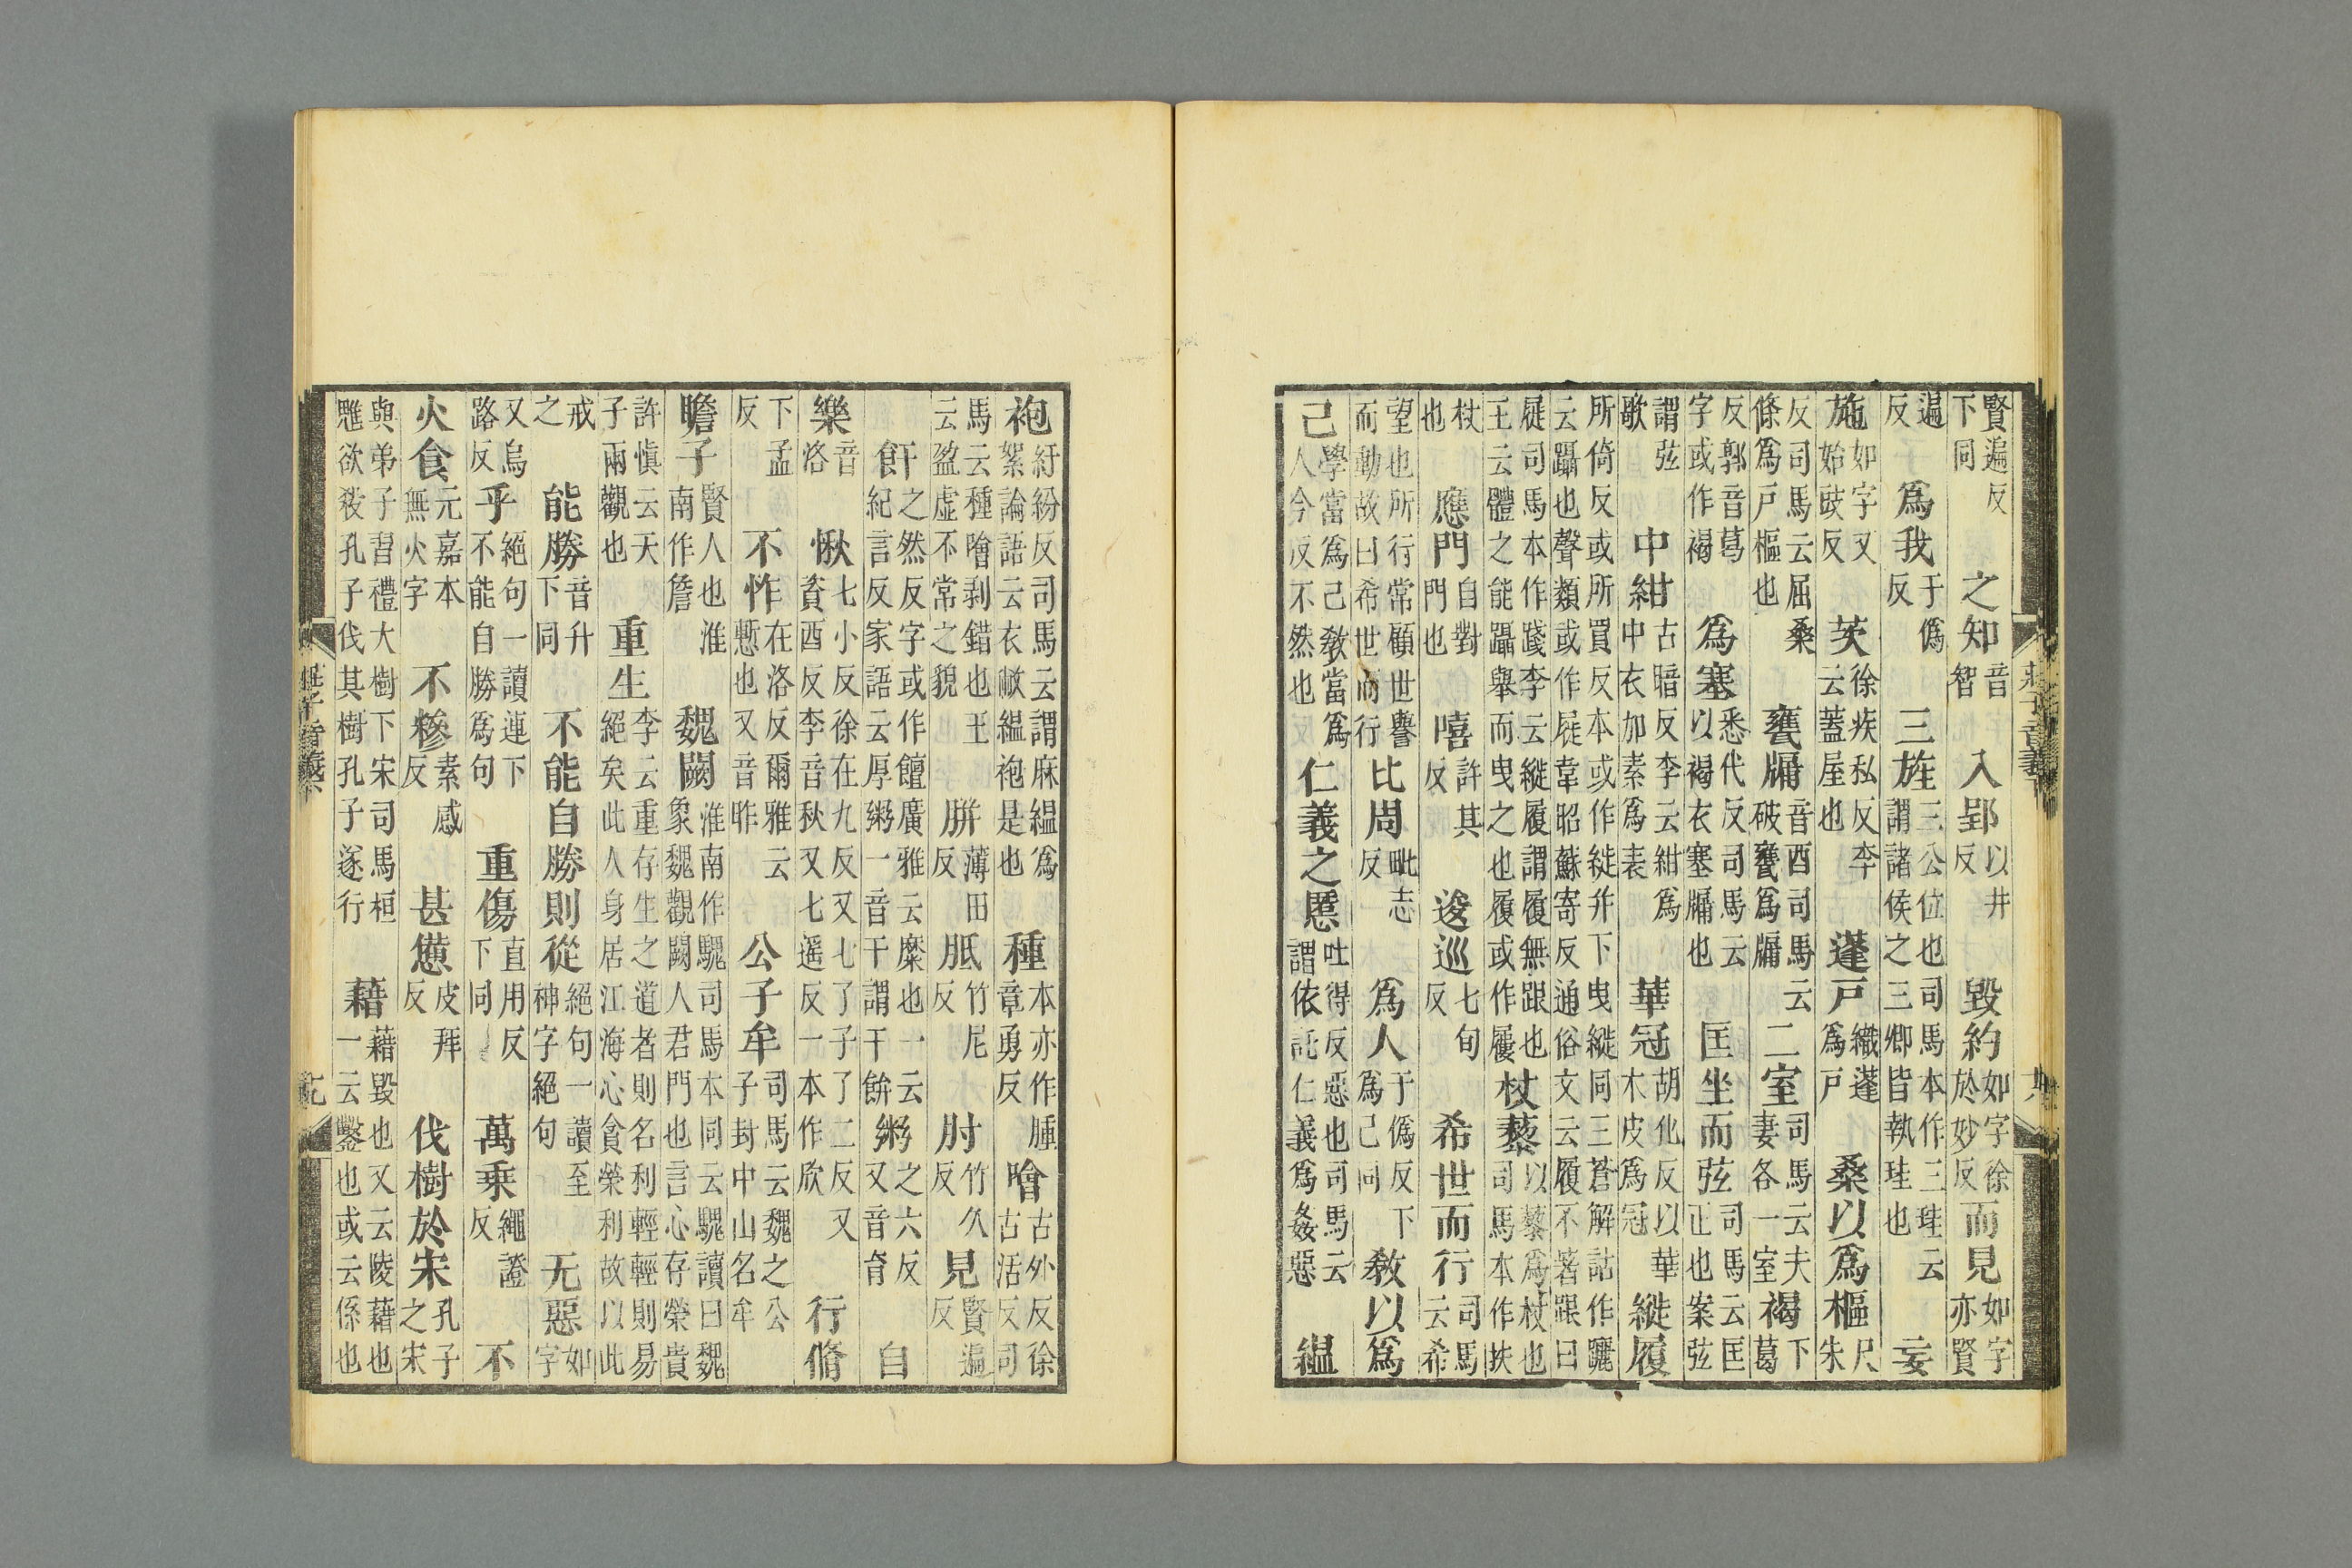 賢遍反下同 之知音智 入郢以井反 毀約如字徐於妙反 而見如字亦賢
遍反 爲我于僞反 三旌三公位也司馬本作三珪云謂諸侯之三卿皆執珪也 妄
施如字又始豉反 茨徐疾私反李云蓋屋也 蓬戸織蓬爲戸 桑以爲樞尺朱
反司馬云屈桑條爲戸樞也 甕牖音酉司馬云破甕爲牖 二室司馬云夫妻各一室 褐下葛
反郭音葛字或作褐 爲塞悉代反司馬云以褐衣塞牖也 匡坐而弦司馬云匡正也案弦
謂弦歌 中紺古暗反李云紺爲中衣加素爲表 華冠胡化反以華木皮爲冠 縰履
所倚反或所買反本或作縰并下曳縰同三蒼解詁作躧云躡也聲類或作屣韋昭蘇寄反通俗文云履不著跟曰
屣司馬本作踐李云縰履謂履無跟也王云體之能躡舉而曳之也履或作屨 杖藜以藜爲杖也司馬本作扶
杖也 應門自對門也 嘻許其反 逡巡七旬反 希世而行司馬云希
望也所行常顧世譽而動故曰希世而行 比周毗志反 爲人于僞反下爲己同 敎以爲
己學當爲己敎當爲人今反不然也 仁義之慝吐得反惡也司馬云謂依託仁義爲姦惡 縕
袍紆紛反司馬云謂麻縕爲絮論語云衣敝縕袍是也 種本亦作腫章勇反 噲古外反徐古活反司
馬云種噲剥錯也王云盈虚不常之貌 胼薄田反 胝竹尼反 肘竹久反 見賢遍反
飦之然反字或作饘廣雅云糜也一云紀言反家語云厚粥一音干謂干餅 粥之六反又音育 自
樂音洛 愀七小反徐在九反又七了子了二反又資酉反李音秋又七遥反一本作欣 行脩
下孟反 不怍在洛反爾雅云慙也又音昨 公子牟司馬云魏之公子封中山名牟
瞻子賢人也淮南作詹 魏闕淮南作魏司馬本同云魏讀曰魏象魏觀闕人君門也言心存榮貴
許愼云天子兩觀也 重生李云重存生之道者則名利輕輕則易絕矣此人身居江海心貪榮利故以此
戒之 能勝音升下同 不能自勝則從絕句一讀至神字絕句 无惡如字
又烏路反 乎絕句一讀連下不能自勝爲句 重傷直用反下同 萬乘繩證反 不
火食元嘉本無火字 不糝素感反 甚憊皮拜反 伐樹於宋孔子之宋
與弟子習禮大樹下宋司馬桓魋欲殺孔子伐其樹孔子遂行 藉藉毀也又云陵藉也一云鑿也或云係也
莊子音義